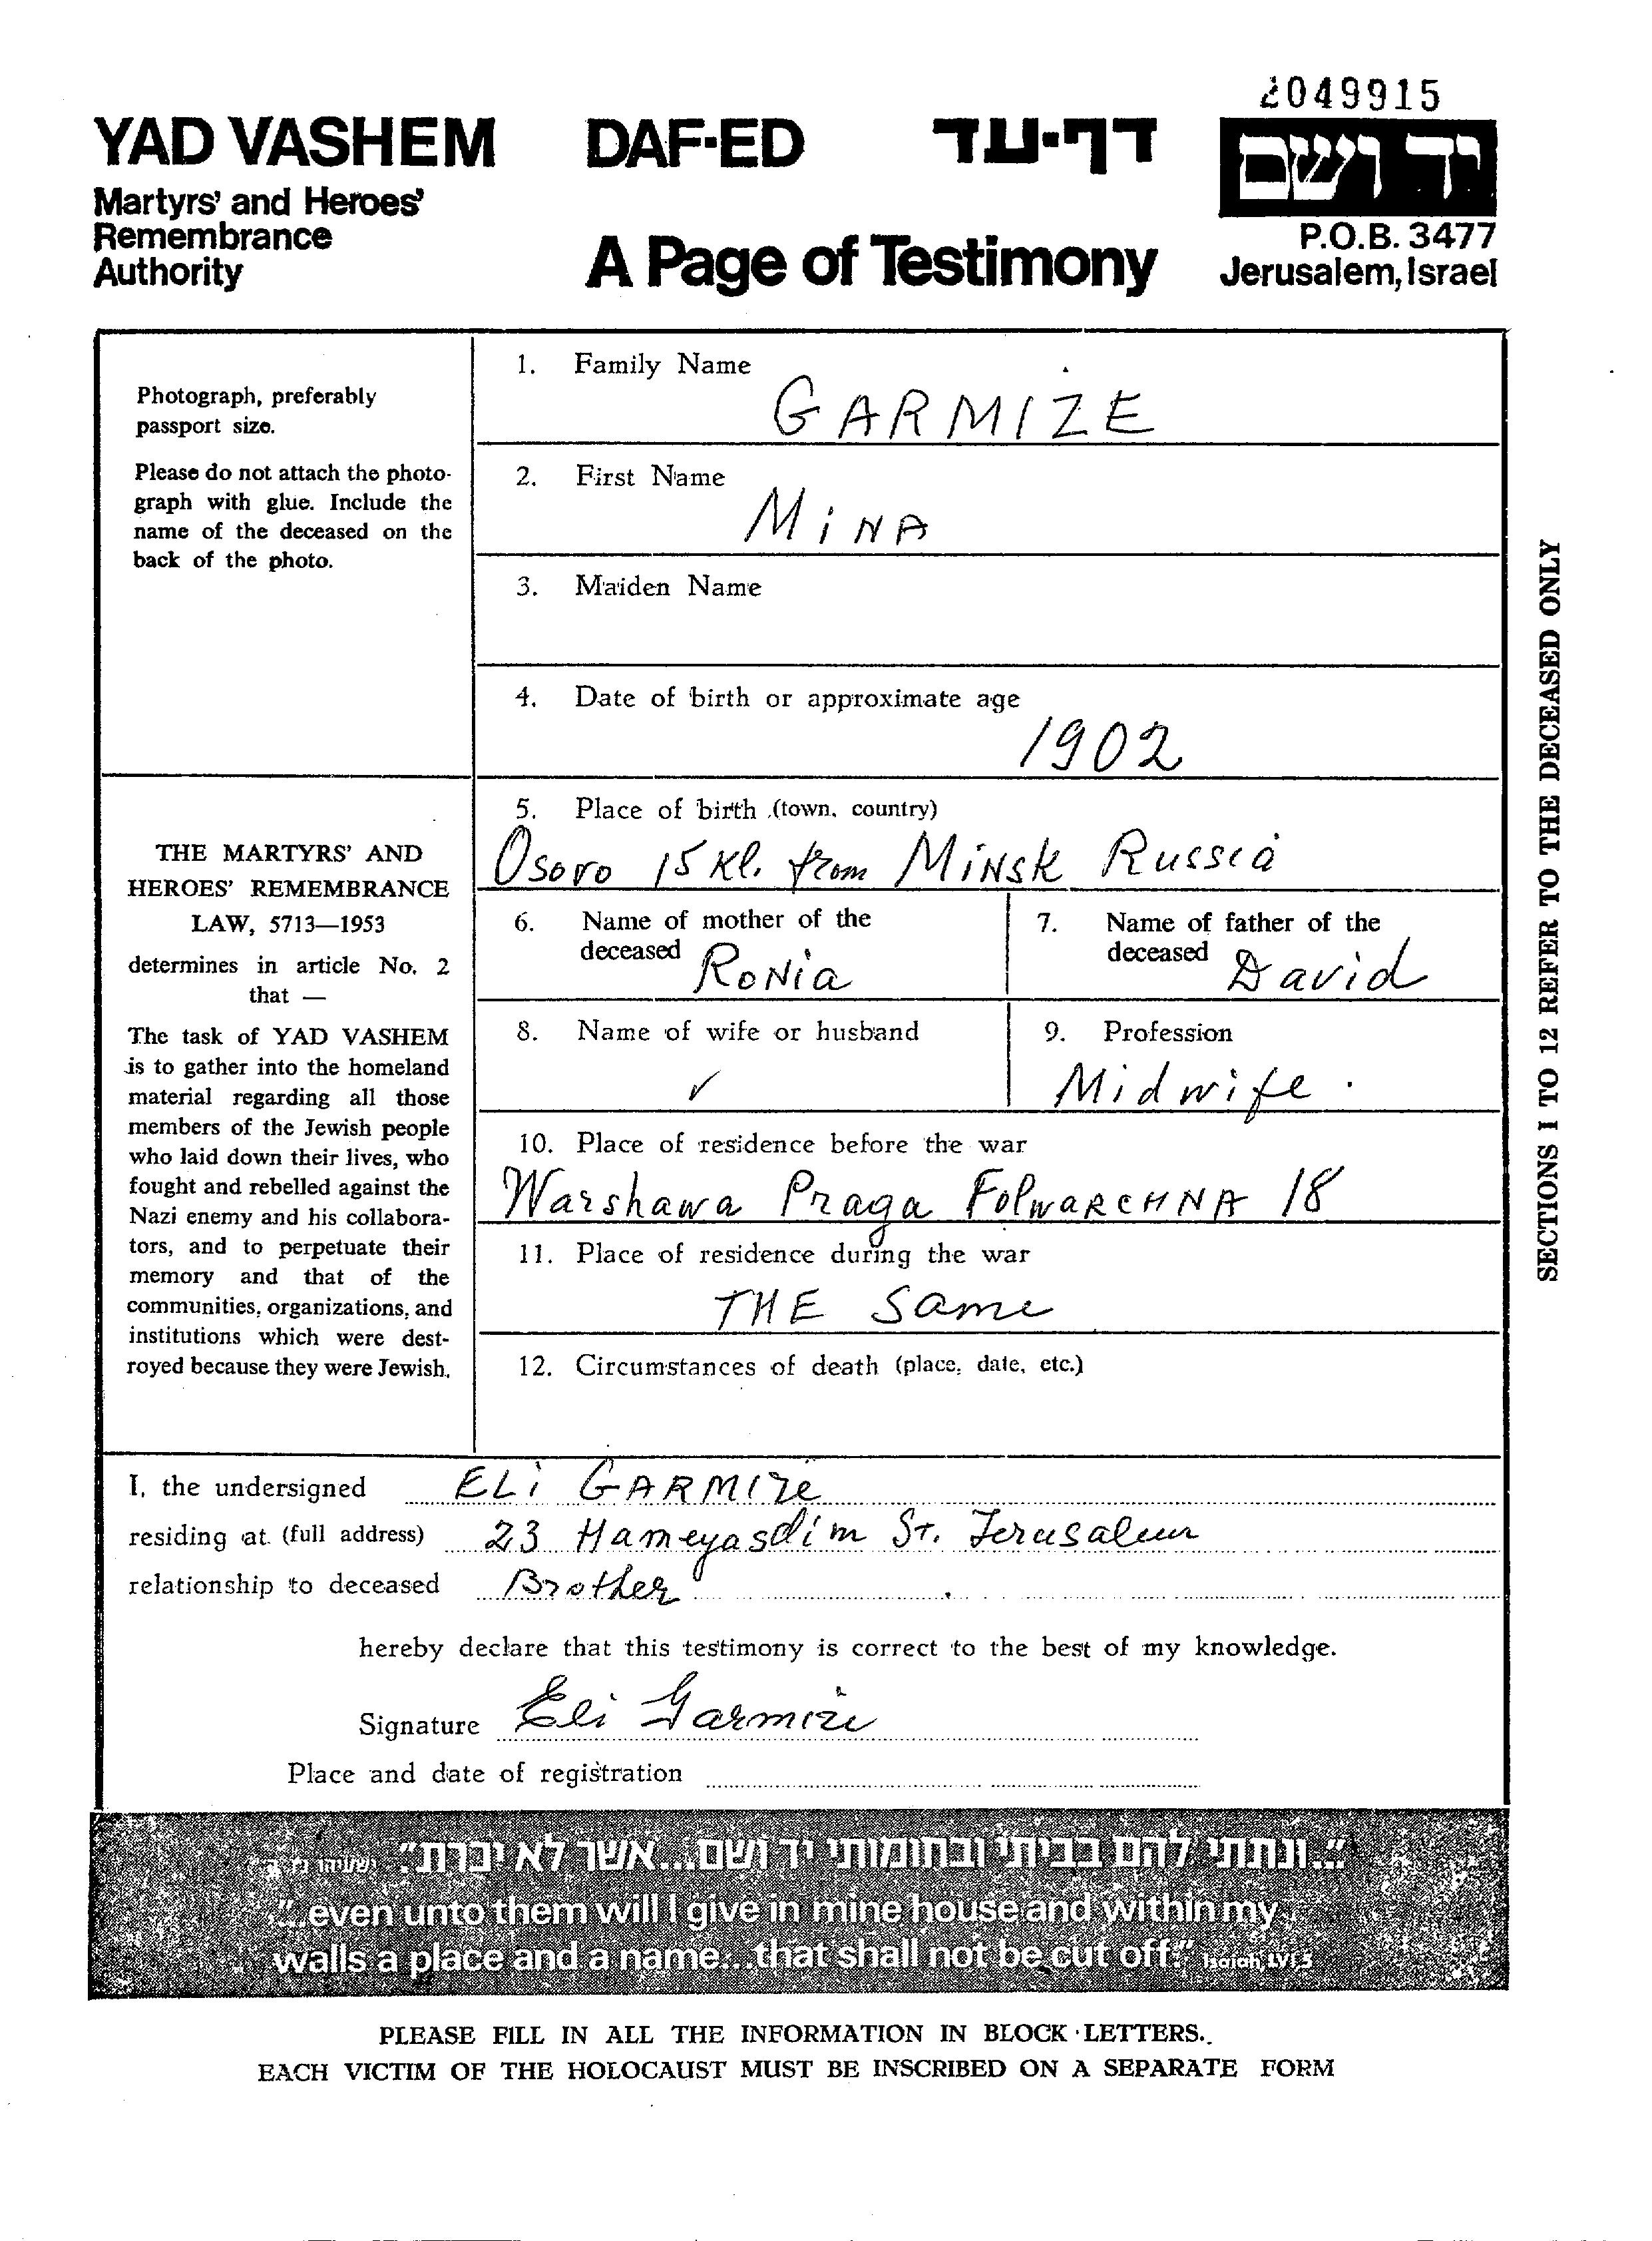 2049915
YAD VASHEM DAF-ED דף-עד יד ושם
Martyrs' and Heroes'
Remembrance
Authority
A Page of Testimony
P.O.B. 3477
Jerusalem, Israel
Photograph, preferably
passport size.
Please do not attach the photo-
graph with glue. Include the
name of the deceased on the
back of the photo.
THE MARTYRS' AND
HEROES' REMEMBRANCE
LAW, 5713—1953
determines in article No. 2
that —
The task of YAD VASHEM
is to gather into the homeland
material regarding all those
members of the Jewish people
who laid down their lives, who
fought and rebelled against the
Nazi enemy and his collabora-
tors, and to perpetuate their
memory and that of the
communities, organizations, and
institutions which were dest-
royed because they were Jewish.
1. Family Name
GARMIZE
2. First Name
MiNA
3. Maiden Name
4. Date of birth or approximate age
1902
5. Place of birth (town, country)
Osoro 15 Kl. from MiNsk Russia
6. Name of mother of the
deceased RoNia
7. Name of father of the
deceased David
8. Name of wife or husband
✓
9. Profession
Midwife.
10. Place of residence before the war
Warshawa Praga FolwaRCHNA 18
11. Place of residence during the war
THE Same
12. Circumstances of death (place, date, etc.)
SECTIONS 1 TO 12 REFER TO THE DECEASED ONLY
I, the undersigned ELi GARMIZe
residing at (full address) 23 Hameyasdim St. Jerusalem
relationship to deceased Brother
hereby declare that this testimony is correct to the best of my knowledge.
Signature Eli Garmize
Place and date of registration
"...ונתתי להם בביתי ובחומותי יד ושם...אשר לא יכרת"
"...even unto them will I give in mine house and within my
walls a place and a name...that shall not be cut off." Isaiah, LVI, 5
PLEASE FILL IN ALL THE INFORMATION IN BLOCK LETTERS.
EACH VICTIM OF THE HOLOCAUST MUST BE INSCRIBED ON A SEPARATE FORM